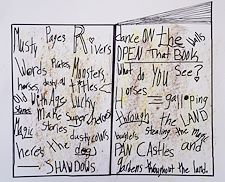 Musty Pages Rivers
Words Pirates, Monsters,
horses,
Old With Age Lucky
Stones Make superheroes
Magic Stones dusty cows
here's the dog
SHADOWS
Dance ON the walls
OPEN That BOOK
What do You See?
Horses galloping
Through the LAND
stealing the magic
PAN Castles and
gardens throughout the land.